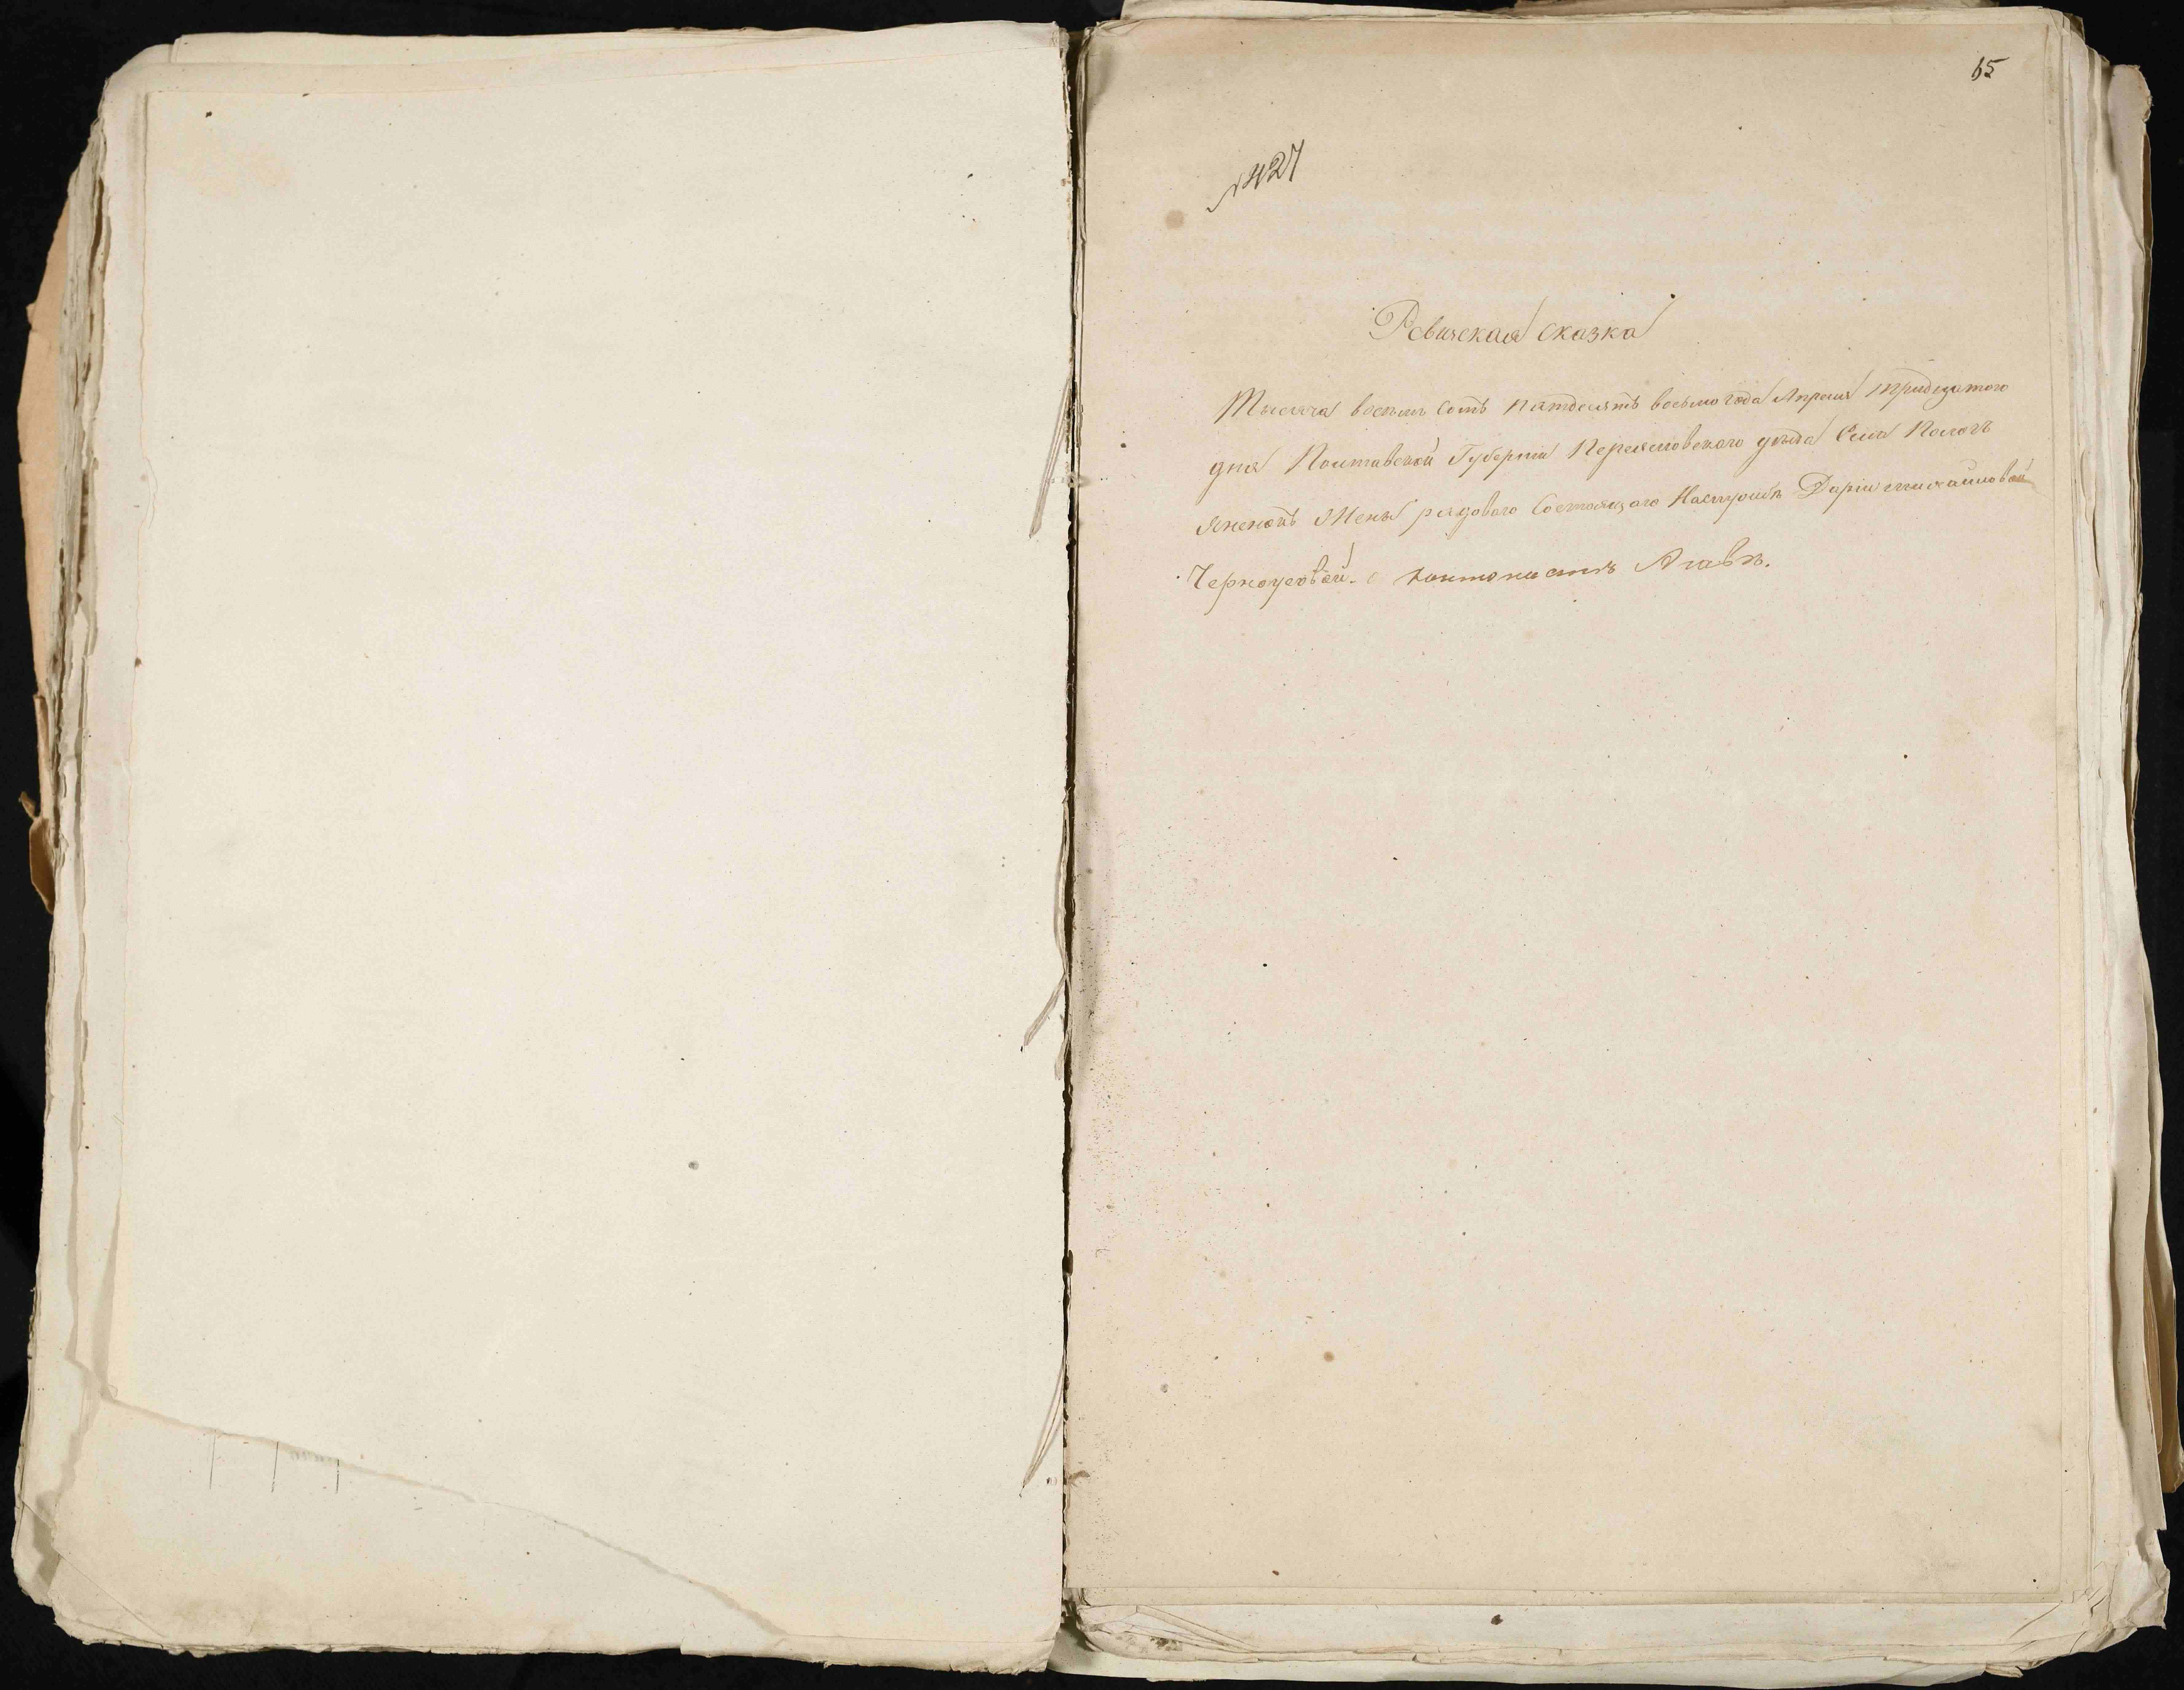 65
№ 427
Ревизская сказка
Тысяча восемь сотъ пятдесятъ восьмо года Апреля тридцатого
дня Полтавской Губерніи Переясловского уезда Села
Жены рядового Состоящого Даріи михаиловой
Черноусовой.